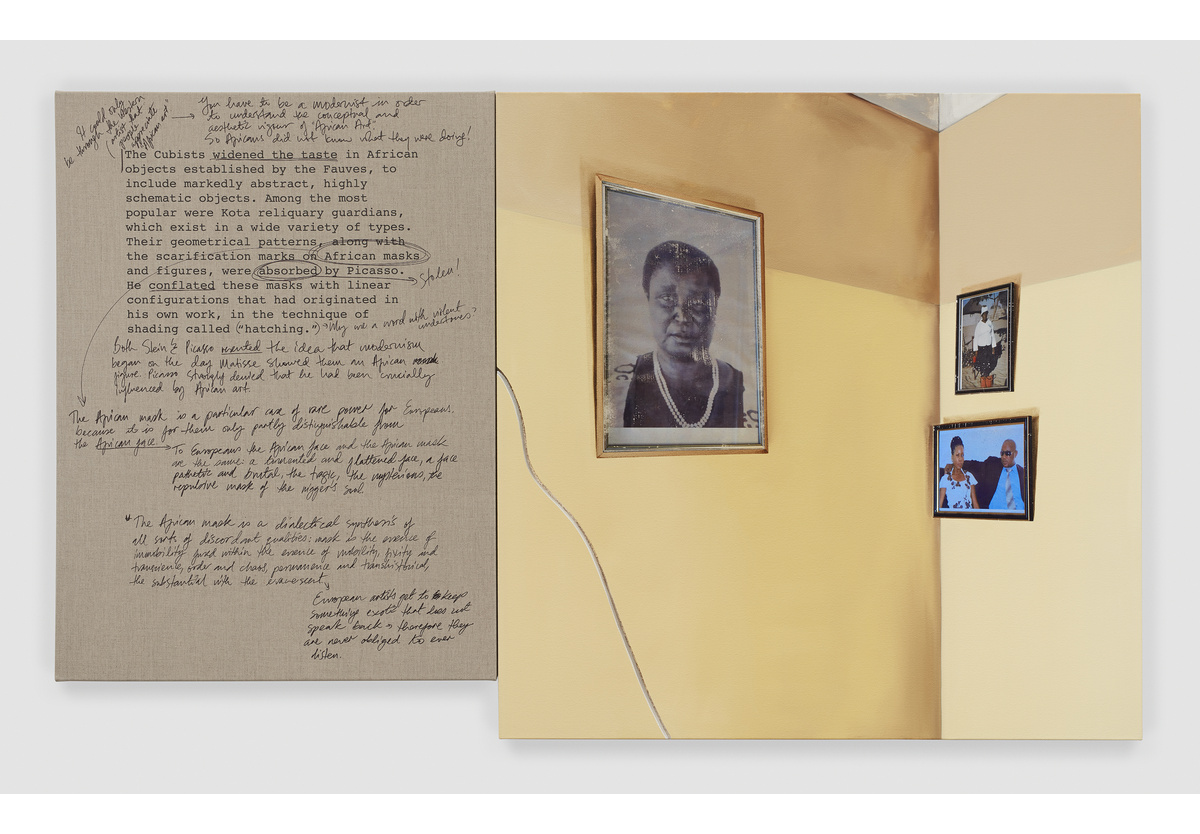 It could only
be through the Western
artist that
people
appreciate
African art"
You have to be a modernist in order
to understand the conceptual and
aesthetic vigour of "African Art".
So Africans did not know what they were doing!
The Cubists widened the taste in African
objects established by the Fauves, to
include markedly abstract, highly
schematic objects. Among the most
popular were Kota reliquary guardians,
which exist in a wide variety of types.
Their geometrical patterns, along with
the scarification marks on African masks
and figures, were absorbed by Picasso.
Stolen!
He conflated these masks with linear
configurations that had originated in
his own work, in the technique of
shading called ("hatching.")
Why use a word with violent
undertones?
Both Stein & Picasso resented the idea that modernism
began on the day Matisse showed them an African
figure. Picasso strongly denied that he had been crucially
influenced by African art.
The African mask is a particular case of rare power for Europeans,
because it is for them only partly distinguishable from
the African face.
To Europeans the African face and the African mask
are the same: a tormented and flattened face, a face
pathetic and brutal, the tragic, the mysterious, the
repulsive mask of the nigger's soul
"The African mask is a dialectical synthesis of
all sorts of discordant qualities: mask as the essence of
immobility fused within the essence of mobility, fixity and
transience, order and chaos, permanence and transhistorical,
the substantial with the evanescent
European artists get to keep
something exotic that does not
speak back therefore they
are never obliged to ever
listen.